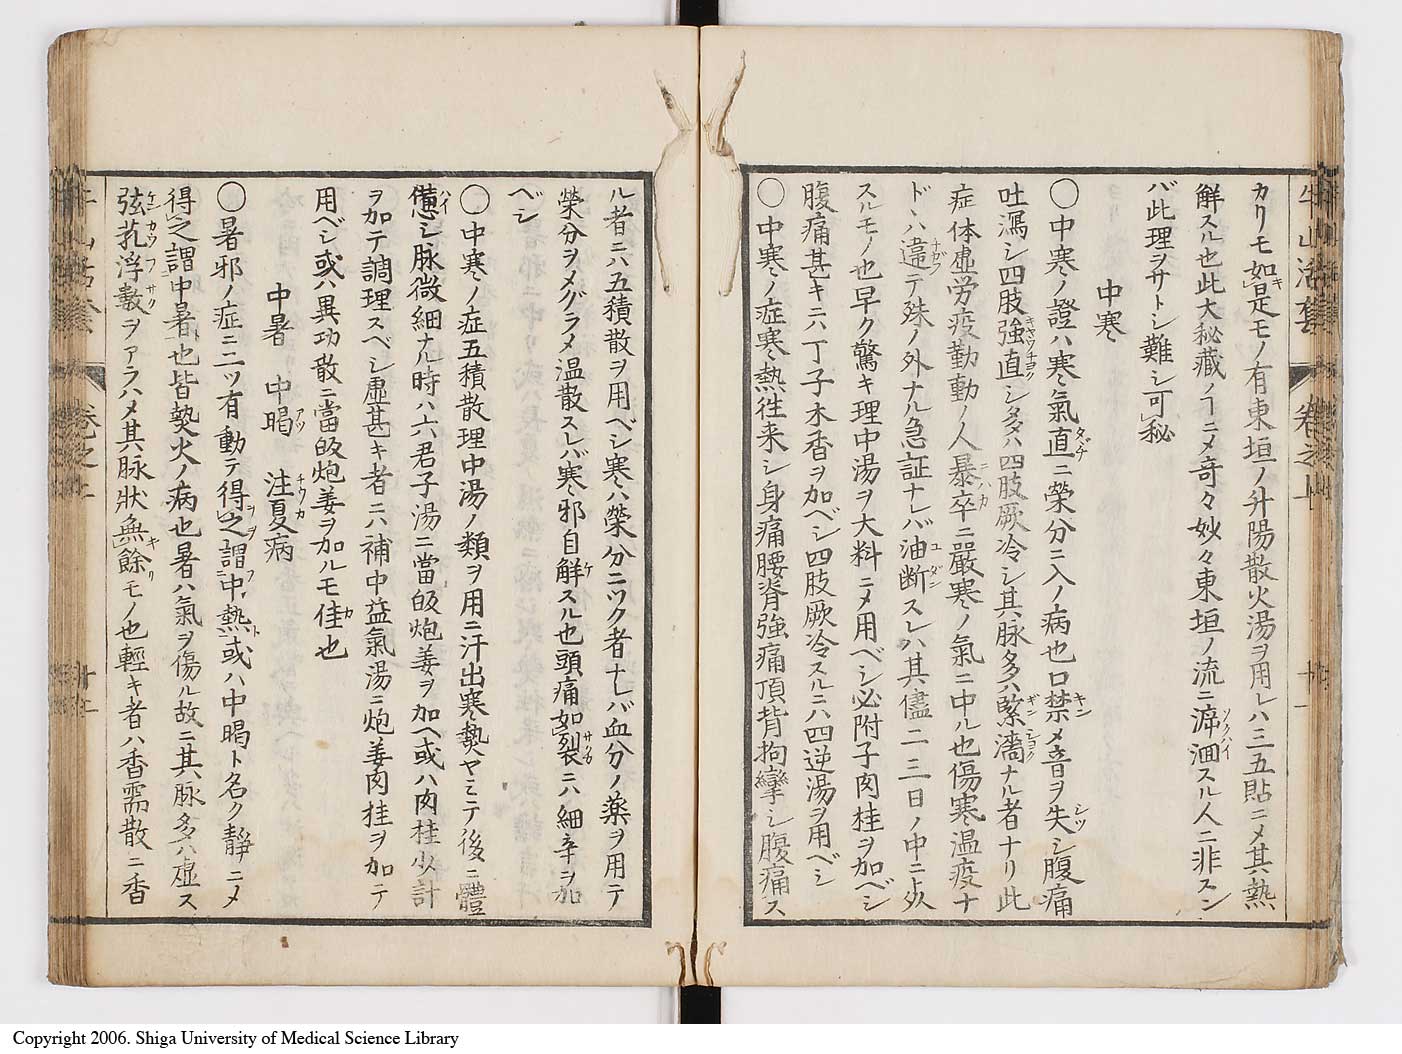 カリモ如キ是モノ有東垣ノ升陽散火湯ヲ用レハ三五貼ニメ其熱
解スル也此大秘藏ノヿニメ奇々妙々東垣ノ流ニ沠洄スル人ニ非スン
バ此理ヲサトシ難シ可秘
中寒
○中寒ノ證ハ寒氣直ニ榮分ニ入ノ病也口禁メ音ヲ失シ腹痛
吐瀉シ四肢強直シ多ハ四肢厥冷シ其脉多ハ緊濇ナル者ナリ此
症体虚労疫勤動ノ人暴卒ニ嚴寒ノ氣ニ中ル也傷寒温疫ナ
ドハ違テ殊ノ外ナル急証ナレバ油断スレハ其儘二三日ノ中ニ死
スルモノ也早ク驚キ理中湯ヲ大料ニメ用ベシ必附子肉桂ヲ加ベシ
腹痛甚キニハ丁子木香ヲ加ベシ四肢厥冷スルニハ四逆湯ヲ用ベシ
○中寒ノ症寒熱徃来シ身痛腰脊強痛頂背拘攣シ腹痛ス
ル者ニハ五積散ヲ用ベシ寒ハ榮分ニツク者ナレバ血分ノ薬ヲ用テ
榮分ヲメグラメ温散スレバ寒邪自解スル也頭痛如裂ニハ細辛ヲ加
ベシ
○中寒ノ症五積散理中湯ノ類ヲ用ニ汗出寒熱ヤミテ後ニ體
憊シ脉微細ナル時ハ六君子湯ニ當皈炮姜ヲ加ヘ或ハ肉桂少計
ヲ加テ調理スベシ虚甚キ者ニハ補中益氣湯ニ炮姜肉桂ヲ加テ
用ベシ或ハ異功散ニ當皈炮姜ヲ加ルモ佳也
中暑 中暍 注夏病
○暑邪ノ症ニニツ有動テ得之謂中熱或ハ中暍ト名ク靜ニメ
得之謂中暑也皆熱火ノ病也暑ハ氣ヲ傷ル故ニ其脉多ハ虚ス
弦芤浮數ヲアラハメ其脉狀無餘モノ也輕キ者ハ香需散ニ香
牛山活套
卷之上
Copyright 2006. Shiga University of Medical Science Library